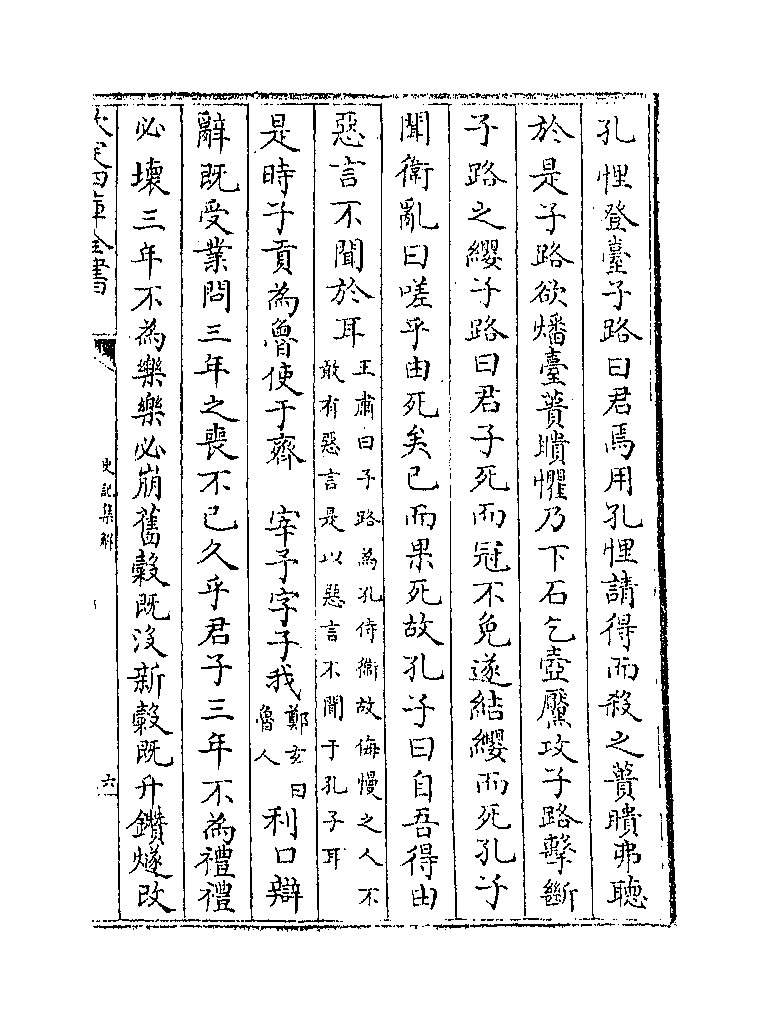 孔悝登臺子路曰君焉用孔悝請得而殺之蕢聵弗聽
於是子路欲燔臺蕢聵懼乃下石乞壺黶攻子路擊斷
子路之纓子路曰君子死而冠不免遂結纓而死孔子
聞衛亂曰嗟乎由死矣已而果死故孔子曰自吾得由
惡言不聞於耳王肅曰子路為孔侍衛故侮慢之人不敢有惡言是以惡言不聞于孔子耳
是時子貢為魯使于齊　宰予字子我鄭玄曰魯人利口辯
辭既受業問三年之喪不已久乎君子三年不為禮禮
必壞三年不為樂樂必崩舊穀既沒新穀既升鑽燧改
欽定四庫全書
史記集解
六